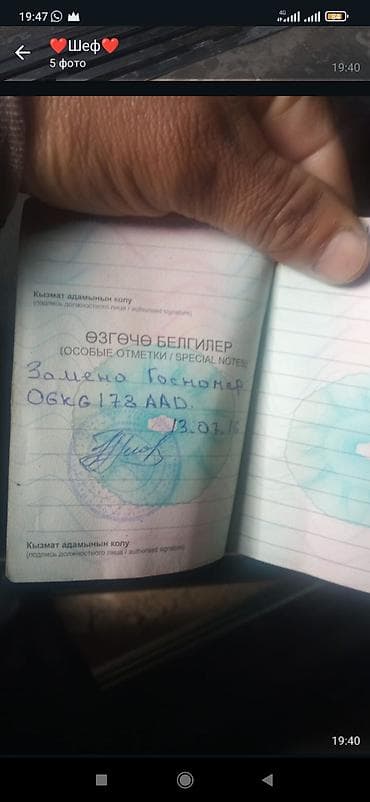 19:47
4G
54
❤️Шеф❤️
5 фото
19:40
Кызмат адамынын колу
(подпись должностного лица / authorised signature)
ӨЗГӨЧӨ БЕЛГИЛЕР
(ОСОБЫЕ ОТМЕТКИ / SPECIAL NOTES)
Замена Госномер
06KG178 AAD.
13.07.
Кызмат адамынын колу
(подпись должностного лица / authorised signature)
19:40